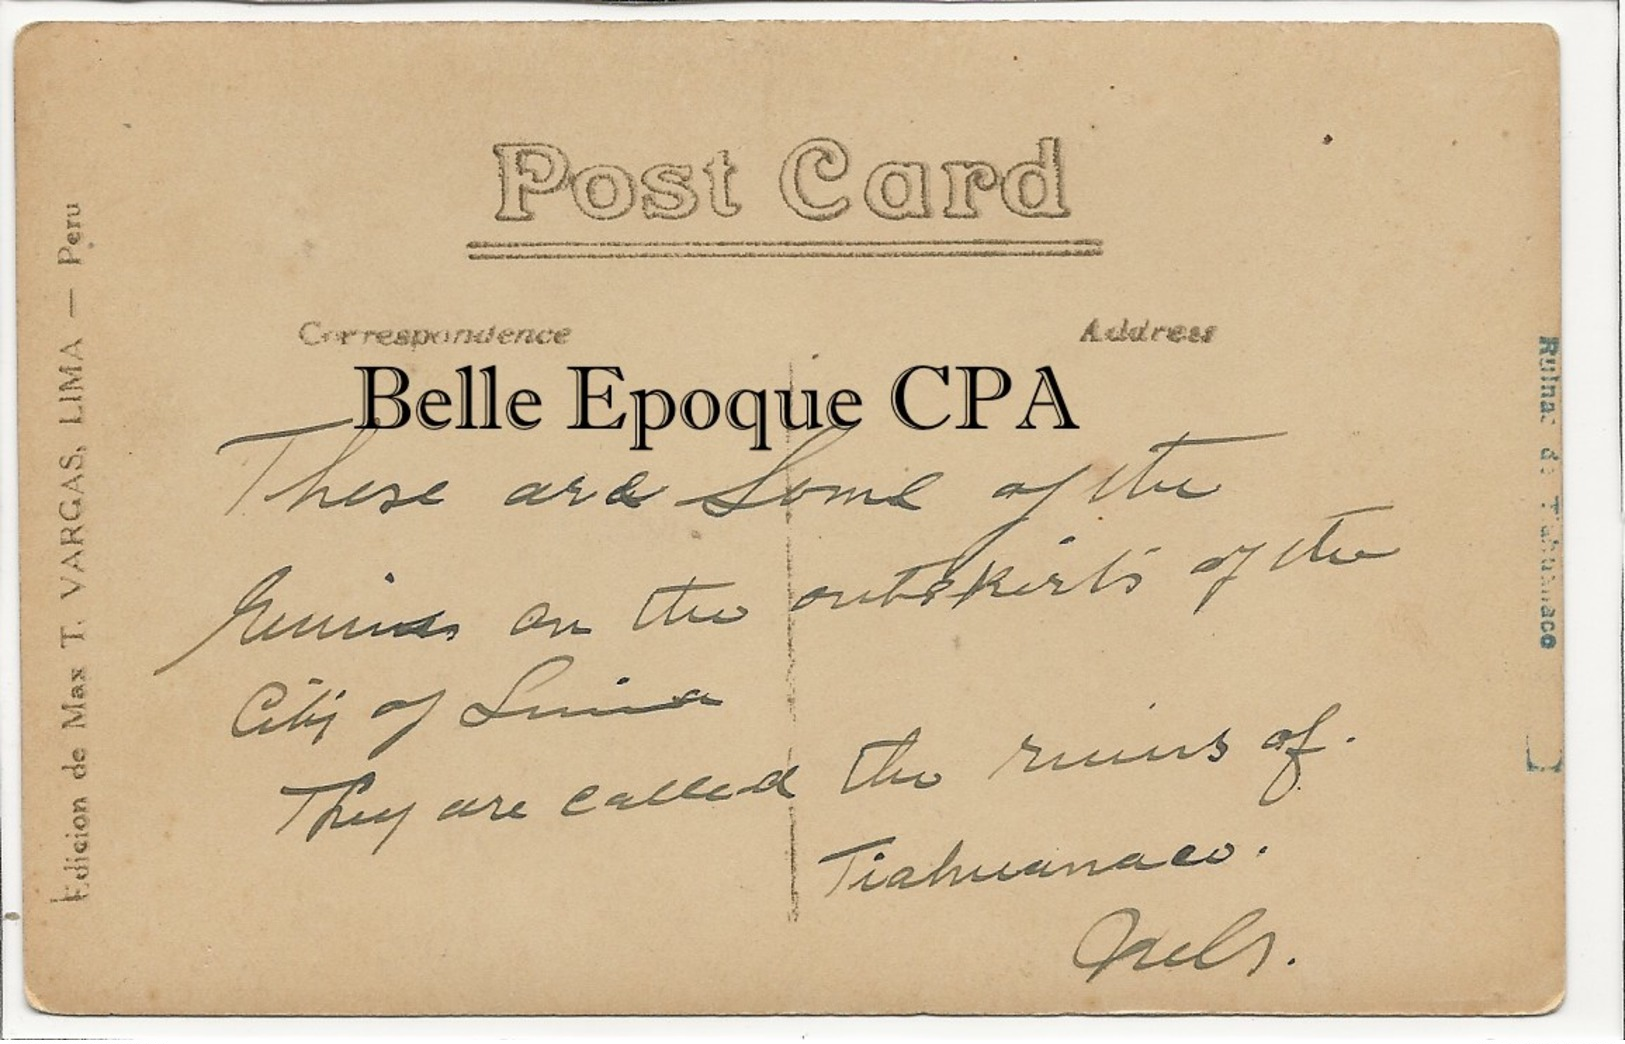 Post Card
Correspondence
Address
Belle Epoque CPA
These are some of the
ruins on the outskirts of the
City of Lima
They are called the ruins of.
Tiahuanaco.
Nels.
Edicion de Max T. VARGAS, LIMA — Peru
Ruinas de Tiahuanaco